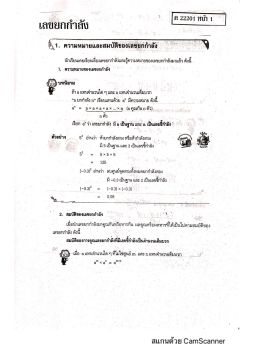 เลขยกกำลัง
ค 22201 หน้า 1
1. ความหมายและสมบัติของเลขยกกำลัง
นักเรียนเคยเรียนเรื่องเลขยกกำลังและรู้ความหมายของเลขยกกำลังมาแล้ว ดังนี้
1. ความหมายของเลขยกกำลัง
บทนิยาม
ถ้า a แทนจำนวนใด ๆ และ n แทนจำนวนเต็มบวก
"a ยกกำลัง n" เขียนแทนด้วย aⁿ มีความหมาย ดังนี้
aⁿ = a × a × a × ... × a (a คูณกัน n ตัว)
n ตัว
เรียก aⁿ ว่า เลขยกกำลัง มี a เป็นฐาน และ n เป็นเลขชี้กำลัง
ตัวอย่าง 5³ อ่านว่า
มี 5 เป็นฐาน และ 3 เป็นเลขชี้กำลัง
5³ = 5 × 5 × 5
= 125
(-0.3)² อ่านว่า
มี -0.3 เป็นฐาน และ 2 เป็นเลขชี้กำลัง
(-0.3)² = (-0.3) × (-0.3)
= 0.09
2. สมบัติของเลขยกกำลัง
เมื่อนำเลขยกกำลังมาคูณกันหรือหารกัน
ของเลขยกกำลัง ดังนี้
สมบัติของการคูณเลขยกกำลังที่มีเลขชี้กำลังเป็นจำนวนเต็มบวก
เมื่อ a แทนจำนวนใด ๆ m และ n แทนจำนวนเต็มบวก
aᵐ × aⁿ = aᵐ⁺ⁿ
สแกนด้วย CamScanner